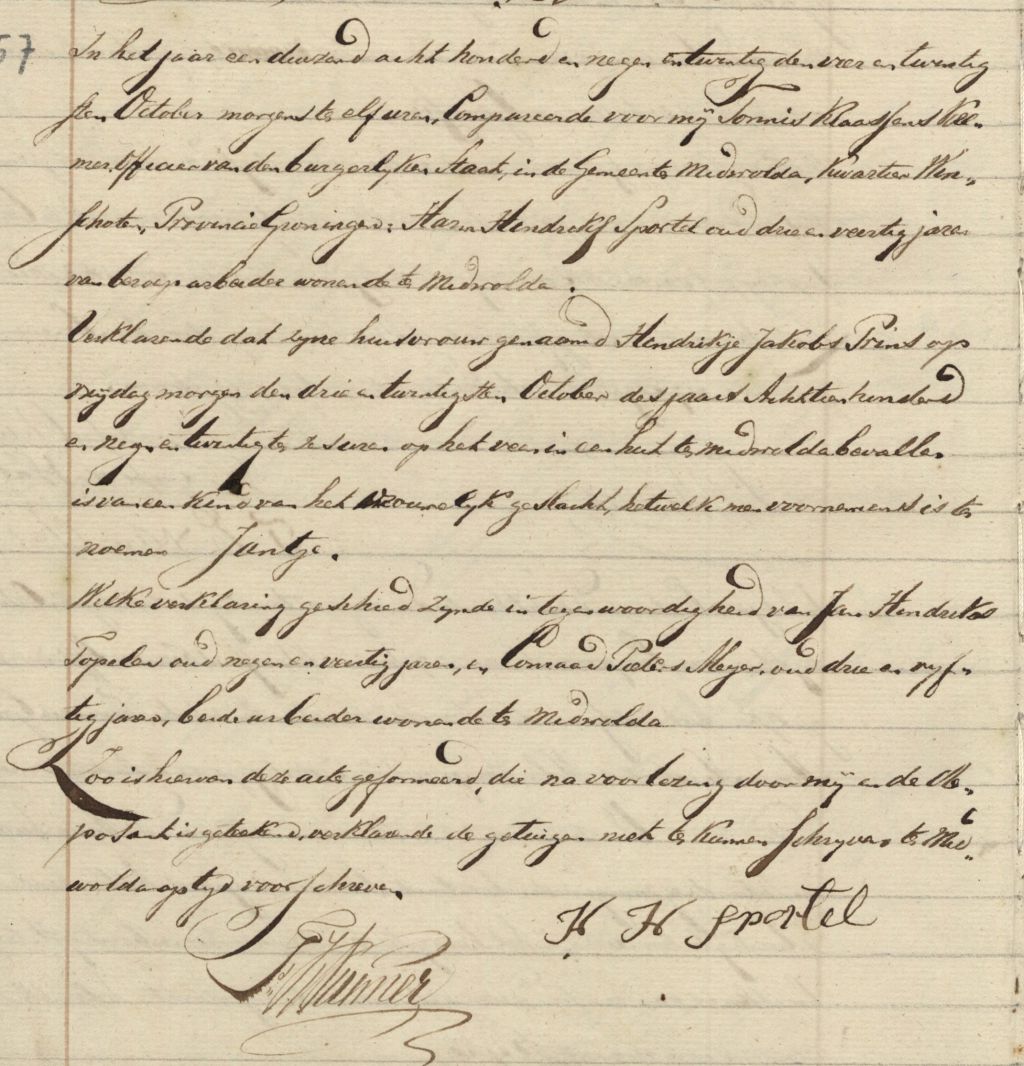 57
In het jaar een duizend acht honderd en negen en twintig den vier en twintig
sten October morgens te elf uren, Compareerde voor mij Tonnis Klaassens Kre-
mer, Officier van den burgerlyken Staat, in de Gemeente Midwolda, Kwartier Win-
schoten, Provincie Groningen: Harm Hendriks Sportel oud drie en veertig jaren
van beroep arbeider wonende te Midwolda.
Verklarende dat zyne huisvrouw genaamd Hendrikje Jakobs Prins op
vrydag morgen den drie en twintigsten October des jaars Achttienhonderd
en negen en twintig te zes uren op het veen in een hut te Midwolda bevallen
is van een Kind van het vrouwelyk geslacht, hetwelk men voornemens is te
noemen Jantje.
Welke verklaring geschied zynde in tegenwoordigheid van Jan Hendriks
Topelen oud negen en veertig jaren, en Conraad Pieters Meyer, oud drie en vyf-
tig jaren, beide arbeider wonende te Midwolda
Zoo is hiervan deze acte geformeerd, die na voorlezing door mij en de De-
posant is getekend, verklarende de getuigen niet te kunnen schryven te Mid-
wolda op tyd voorschreven
H H Sportel